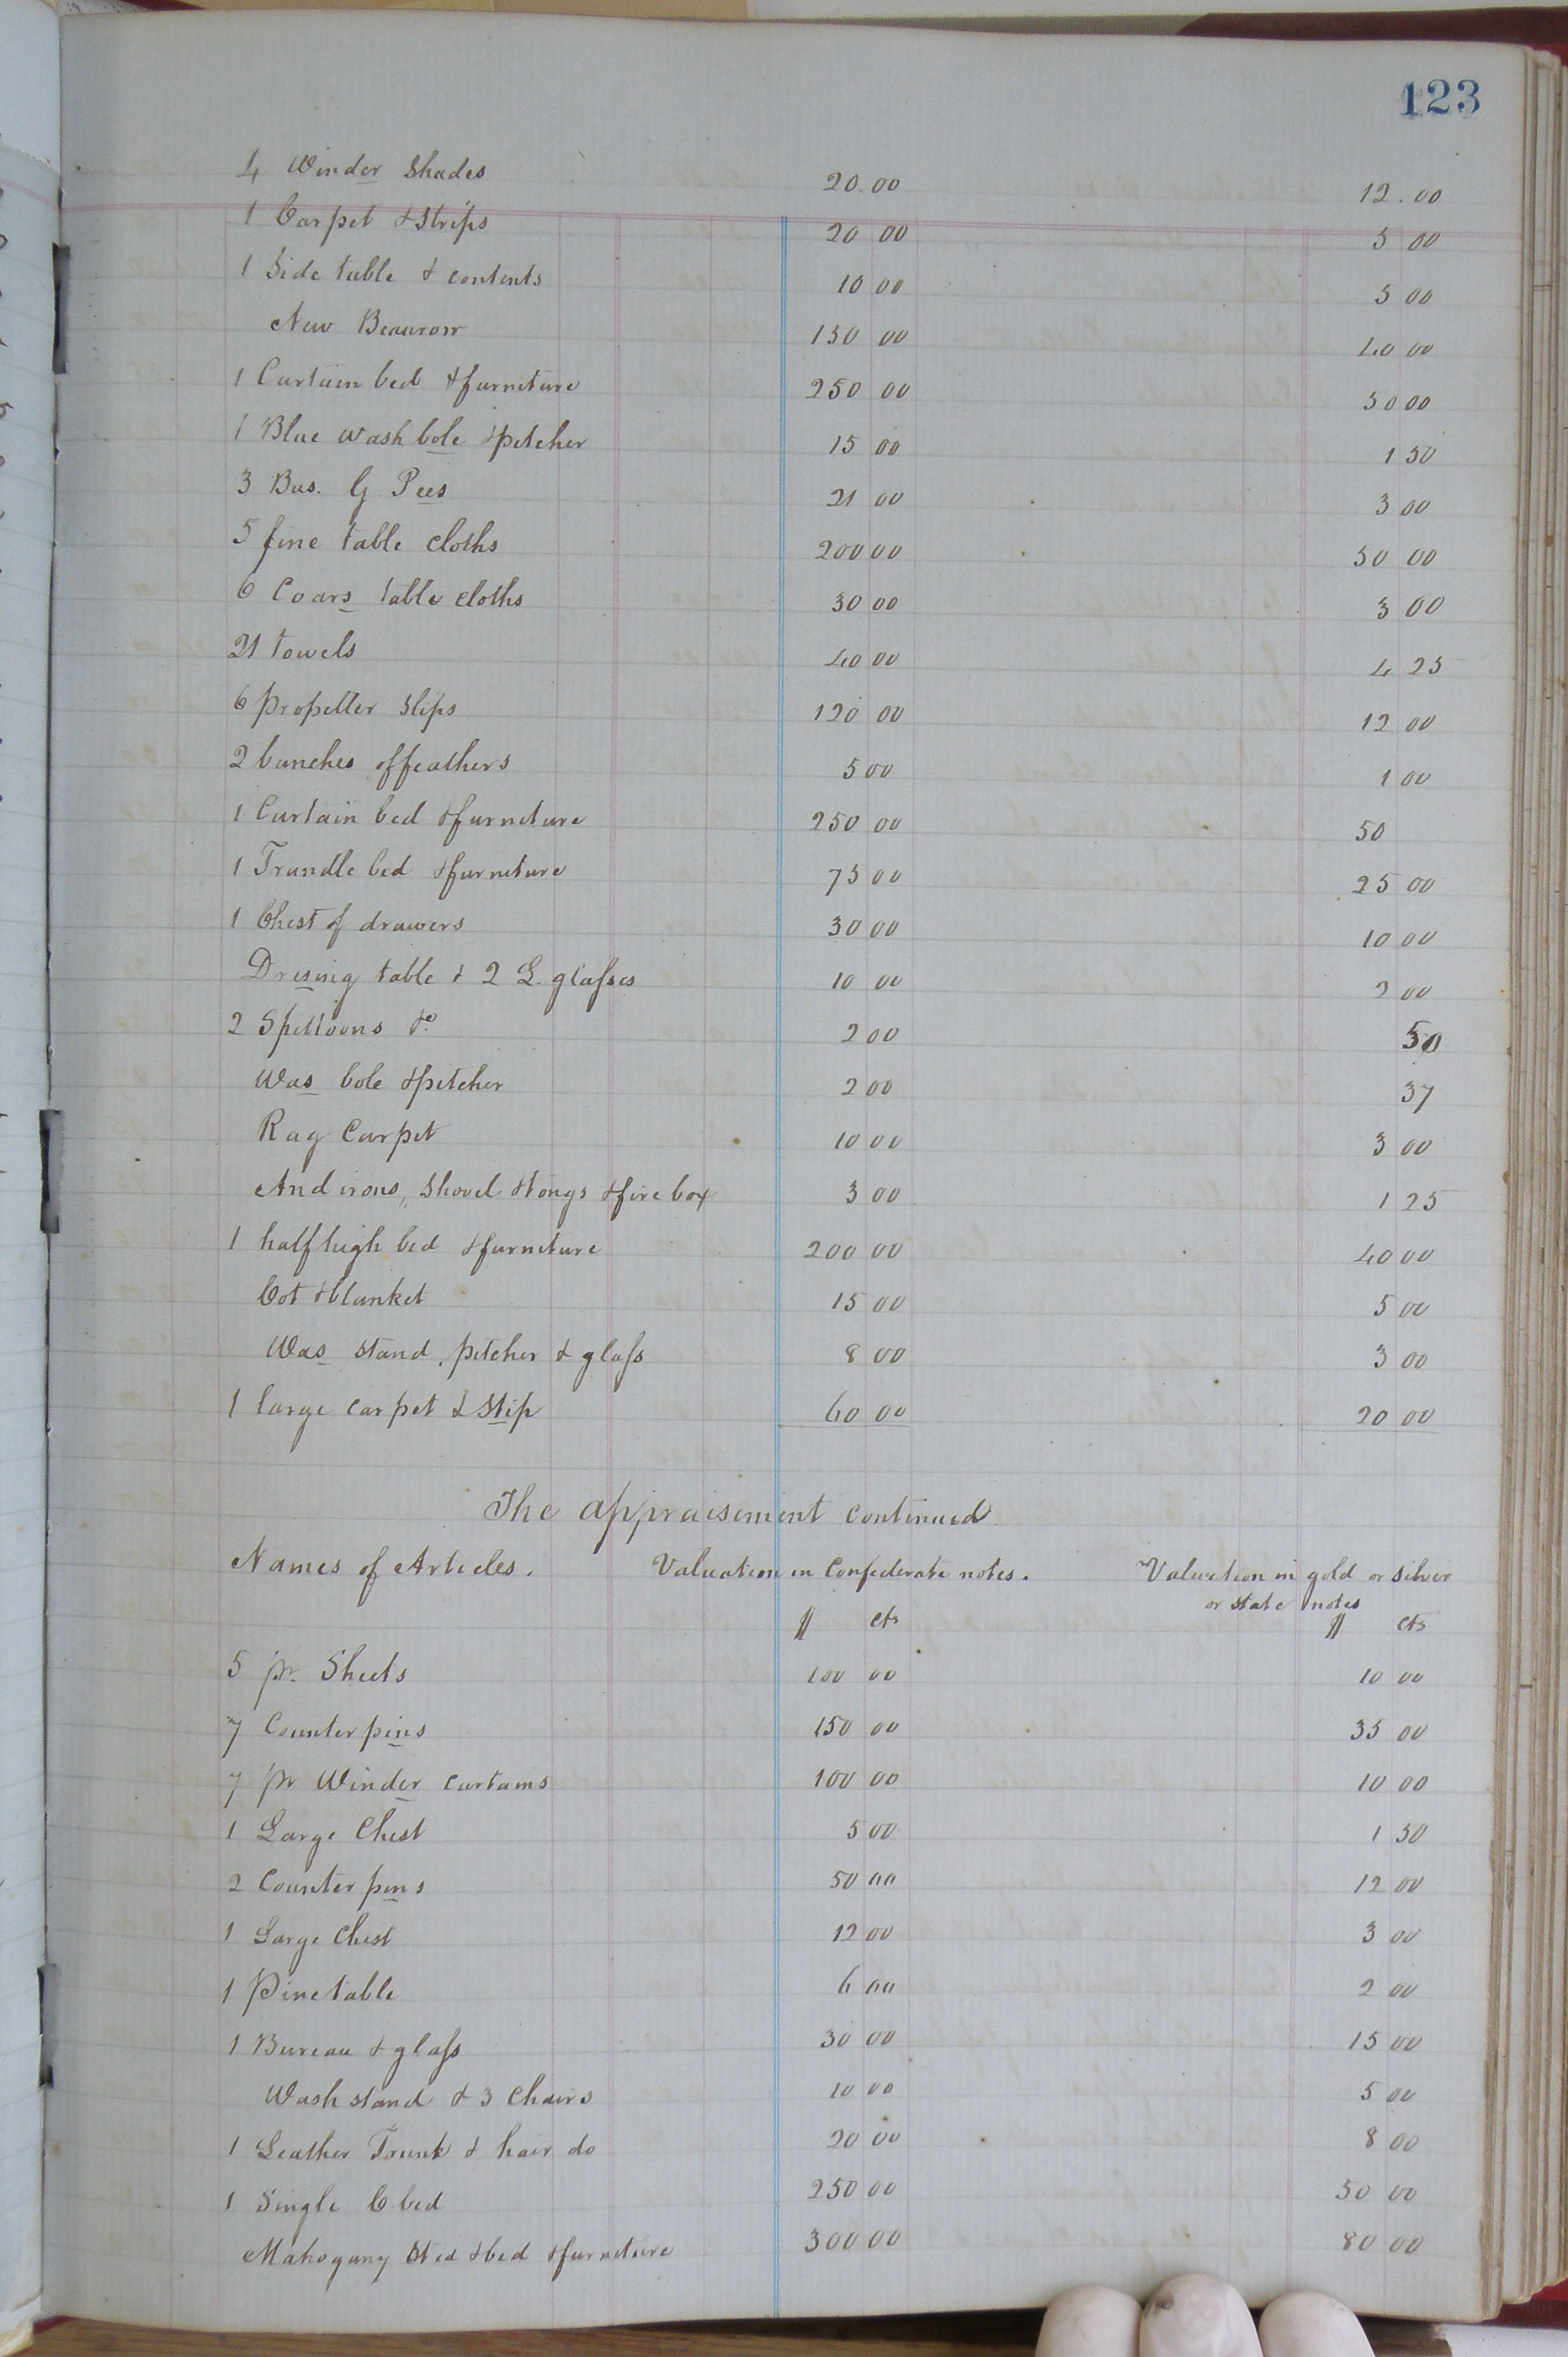 123
4 Winder Shades 20.00 12.00
1 Carpet & Strips 20 00 5 00
1 Side table & contents 10 00 5 00
New Beaurow 150 00 40 00
1 Curtain bed & furniture 250 00 50 00
1 Blue wash bole & pitcher 15 00 1 50
3 Bus. G Pees 21 00 3 00
5 fine table cloths 200 00 50 00
6 Coars table cloths 30 00 3 00
21 towels 40 00 4 25
6 propeller Slips 120 00 12 00
2 bunches of feathers 5 00 1 00
1 Curtain bed & furniture 250 00 50
1 Trundle bed & furniture 75 00 25 00
1 Chest of drawers 30 00 10 00
Dresing table & 2 L. glasses 10 00 2 00
2 Spittoons &c 2 00 50
Was bole & pitcher 2 00 37
Rag Carpet 10 00 3 00
And irons, Shovel & tongs & fire box 3 00 1 25
1 half high bed & furniture 200 00 40 00
Cot & blanket 15 00 5 00
Was stand, pitcher & glass 8 00 3 00
1 large carpet & Stip 60 00 20 00
The appraisement continued
Names of Articles. Valuation in Confederate notes. Valuation in gold or silver
or state notes
$ cts $ cts
5 pr. Sheets 100 00 10 00
7 Counter pins 150 00 35 00
7 pr Winder curtains 100 00 10 00
1 Large Chest 5 00 1 50
2 Counter pins 50 00 12 00
1 Large Chest 12 00 3 00
1 Pine table 6 00 2 00
1 Bureau & glass 30 00 15 00
Wash stand & 3 Chairs 10 00 5 00
1 Leather Trunk & hair do 20 00 8 00
1 Single C. bed 250 00 50 00
Mahogany Sted & bed & furniture 300 00 80 00